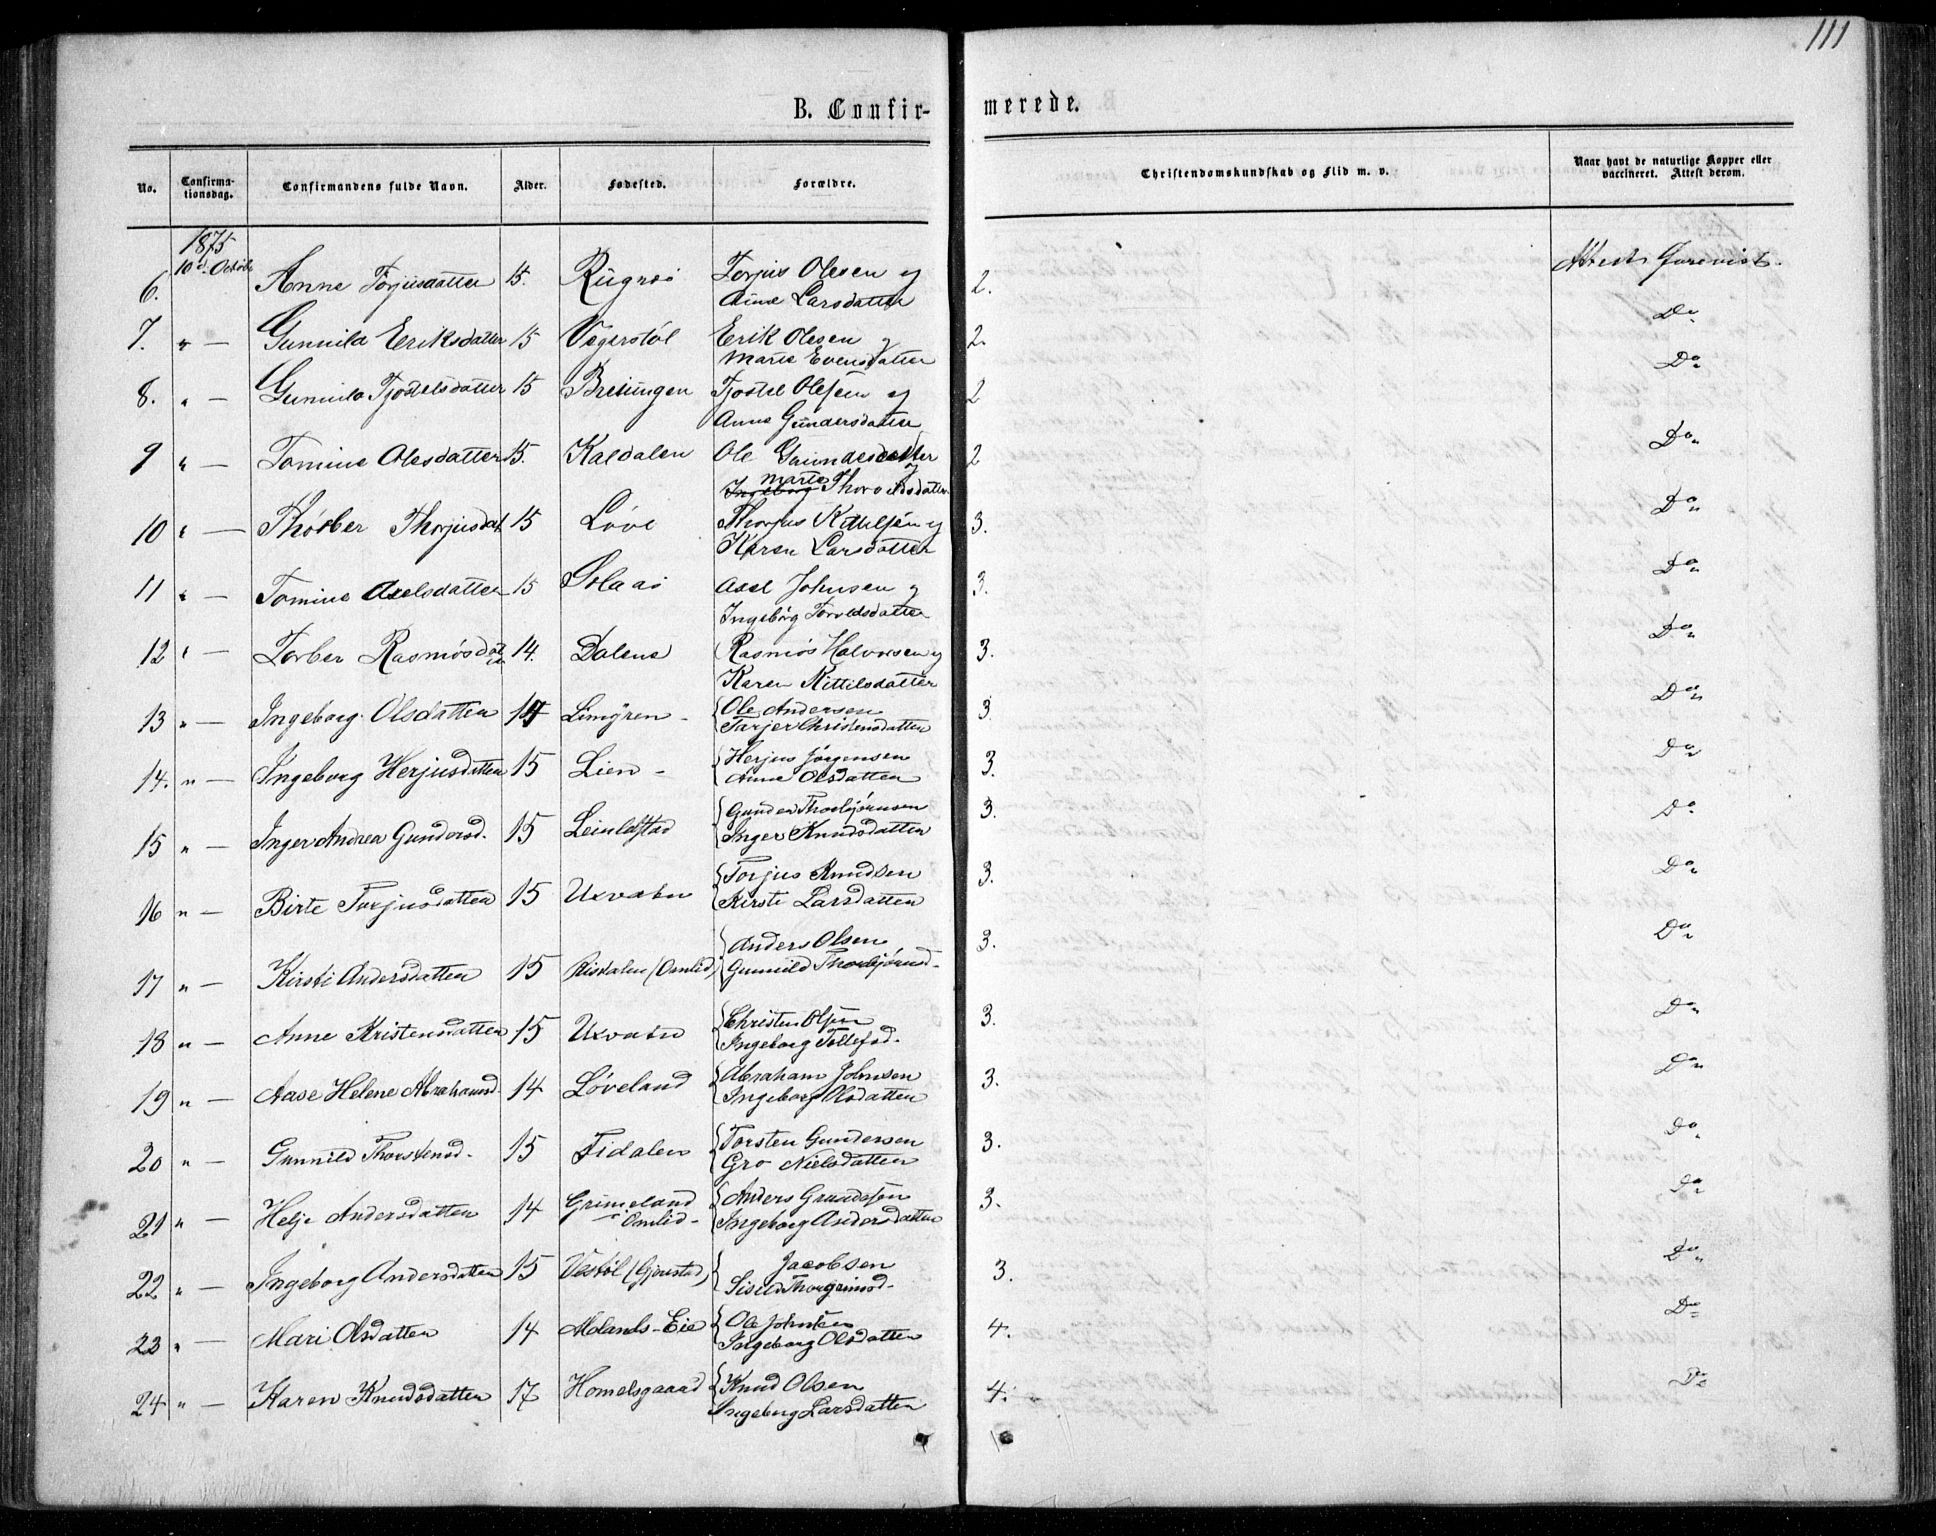 111
B. Confir-
merede.
No. Confirma-tionsdag. Confirmandens fulde Navn. Alder. Fødested. Forældre. Christendomskundskab og Flid m. v. Naar havt de naturlige Kopper eller vaccineret. Attest derom.
1875
10de Octobr
6. Anne Torjusdatter 15. Torjus Olesen og 2. Attest
Anne Larsdatter
7. " — Gunnild Eriksdatter 15 Vegerstøl Erik Olesen og 2. Do
Marte Evensdatter
8. " — Gunnild Tjostelsdatter 15 Tjostel Olesen og 2 Do
Anne Gundersdatter
9 " — Tomine Olesdatter 15. Kaldalen Ole 2 Do
Ingeborg Marte Thorvildsdatter
10 " — Thorber Thorjusdat 15 Løve Thorjus Kittelsen og 3. Do
Karen Larsdatter
11 " — Tomine Axelsdatter 15 Solaas Axel Johnsen og 3. Do
Ingebórg Toroldsdatter
12 " — Torber Rasmósdat 14. Dalene Rasmós Halvorsen og 3. Do
Karen Kittilsdatter
13 " — Ingeborg Olsdatter 14 Limyren - Ole Andersen 3 Do
Tarjer Christensdatter
14. " — Ingeborg Herjusdatter 15 Lien - Herjus Jørgensen 3. Do
Anne Olsdatter
15 " — Inger Andrea Gundersd. 15 Gunder Thorbjørnsen 3. Do
Inger Knudsdatter
16 " — Birte Torjusdatter 15 Uxvatn Torjus Knudsen 3. Do
Kirsti Larsdatter
17 " — Kirsti Andersdatter 15 Risdalen (Omlid) Anders Olsen 3. Do
Gunnild Thorbjørnsd.
18 " — Anne Kristensdatter 15 Uxvatn Christen Olsen 3. Do
Ingeborg Tollefsd.
19 " — Aase Helene Abrahamsd. 14 Løveland Abraham Johnsen 3. Do
Ingeborg Olsdatter
20 " — Gunnild Thorstensd. 15 Fidalen Torsten Gundersen 3. Do
Gro Nielsdatter
21 " — Helje Andersdatter 14 Grimeland Anders 3. Do
Omlid - Ingeborg Andersdatter
22 " — Ingeborg Andersdatter 15 Vestøl (Gjerstad) Jacobsen 3. Do
Sisild Thorgrimsd.
23 " — Mari Olsdatter 14 Molands-Eie Ole Johnsen 4. Do
Ingeborg Olsdatter
24 " — Karen Knudsdatter 17 Homelsgaard Knud Olsen 4. Do
Ingeborg Larsdatter